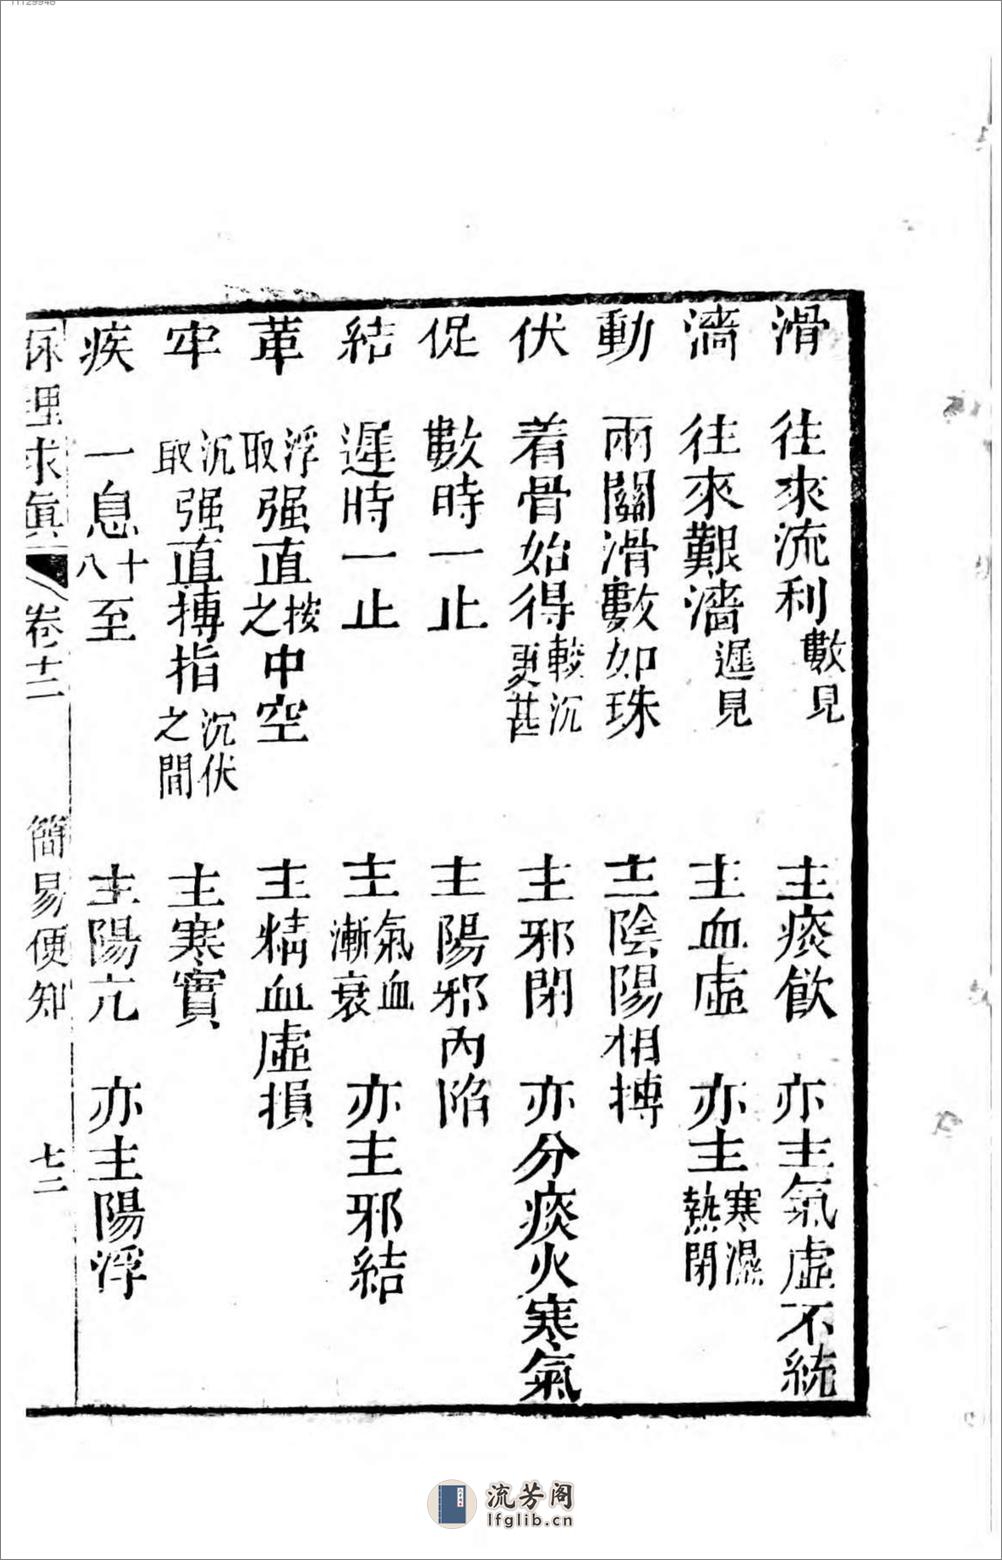 滑 往來流利數見 主痰飲 亦主氣虛不統
濇 往來艱濇遲見 主血虛 亦主寒濕熱閉
動 兩關滑數如珠 主陰陽相搏
伏 着骨始得較沉更甚 主邪閉 亦分痰火寒氣
促 數時一止 主陽邪內陷
結 遲時一止 主氣血漸衰 亦主邪結
革 浮取强直按之中空 主精血虛損
牢 沉取强直搏指沉伏之間 主寒實
疾 一息十八至 主陽亢 亦主陽浮
脉理求眞 卷十二 簡易便知 七二
流芳阁
lfglib.cn